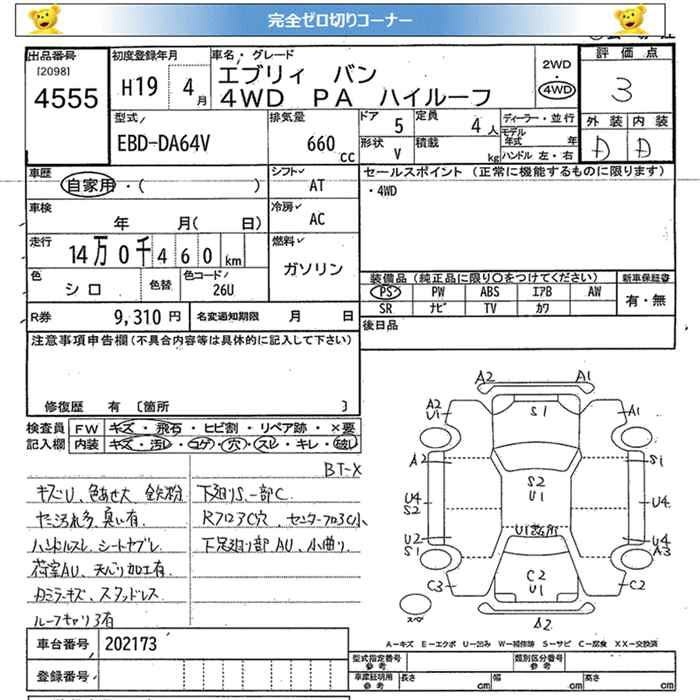 完全ゼロ切りコーナー
出品番号
[2098]
4555
初度登録年月
H19 4月
車名・グレード
エブリィ バン
4WD PA ハイルーフ
2WD
4WD
評価点
3
外装 内装
D D
型式
EBD-DA64V
排気量
660 cc
ドア 5
定員 4人
形状 V
積載 kg
ディーラー・並行
モデル年式 年
ハンドル 左・右
車歴
自家用・( )
シフト
AT
車検
年 月( 日)
冷房
AC
走行
14万0千460km
燃料
ガソリン
色
シロ
色替
色コード
26U
R券 9,310円
名変通知期限 月 日
セールスポイント (正常に機能するものに限ります)
・4WD
装備品(純正品に限り○をつけてください)
PS PW ABS エアB AW
SR ナビ TV カワ
新車保証書
有・無
後日品
注意事項申告欄(不具合内容等は具体的に記入して下さい)
修復歴 有 〔箇所 〕
検査員記入欄
FW キズ・飛石・ヒビ割・リペア跡・×要
内装 キズ・汚レ・コゲ・穴・スレ・キレ・破レ
BT-X
キズU、色あせ大 鉄粉
ヤニ汚れ多 臭い有
ハンドルスレ、シートヤブレ
荷室AU、天バリ加工有
カミラーキズ、スタッドレス
ルーフキャリア有
下廻りS、一部C
RフロアC穴、センターフロアC小
下足廻り部AU、小曲り
A2 A1
A2 U1 S1 A1
A2 S1
S2 U1
U4 S2 U4
U1
U2 S1 A3
C3 C2 U1 C2
スペア
S2
A=キズ E=エクボ U=凹み W=補修跡 S=サビ C=腐食 XX=交換済
車台番号 202173
登録番号
型式指定番号 参考
類別区分番号 参考
車庫証明用 参考
長さ cm
幅 cm
高さ cm